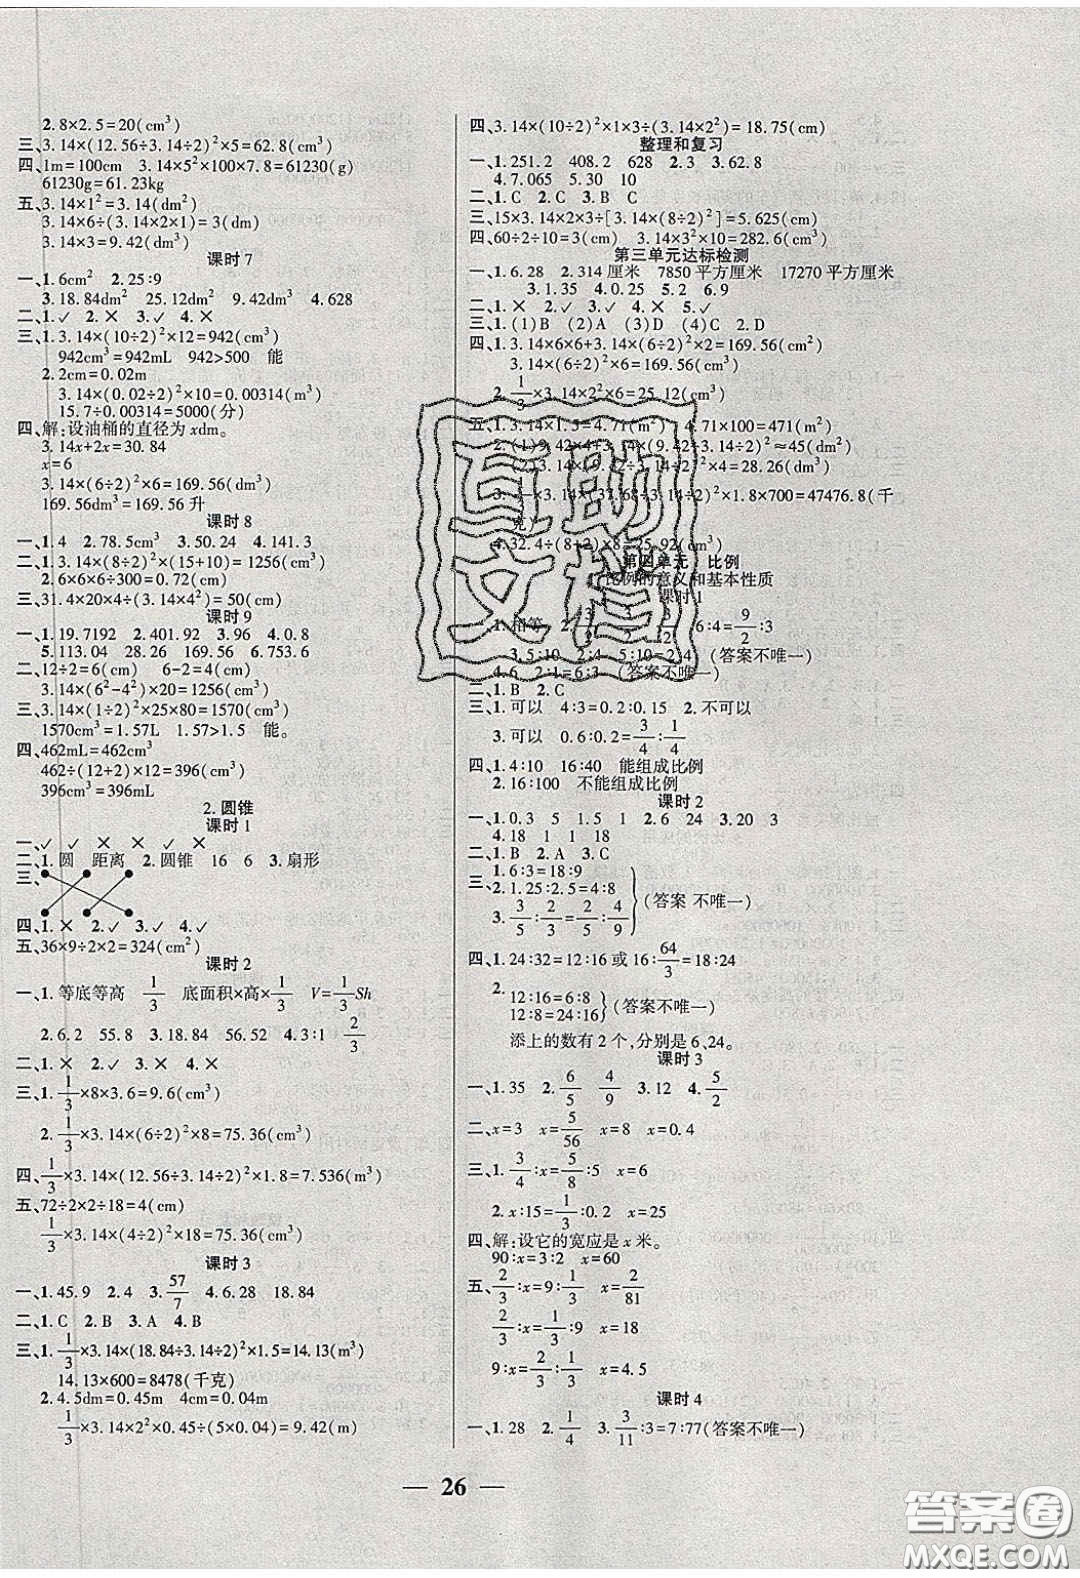 2. 8×2.5=20(cm³)
三、3.14×(12.56÷3.14÷2)²×5=62.8(cm³)
四、1m=100cm 3.14×5²×100×7.8=61230(g)
61230g=61.23kg
五、3.14×1²=3.14(dm²)
3.14×6÷(3.14×2×1)=3(dm)
3.14×3=9.42(dm³)
课时7
一、1.6cm² 2.25∶9
3.18.84dm² 25.12dm² 9.42dm³ 4.628
二、1.✓ 2.× 3.✓ 4.×
三、1.3.14×(10÷2)²×12=942(cm³)
942cm³=942mL 942>500 能
2.2cm=0.02m
3.14×(0.02÷2)²×10=0.00314(m³)
15.7÷0.00314=5000(分)
四、解:设油桶的直径为xdm。
3.14x+2x=30.84
x=6
3.14×(6÷2)²×6=169.56(dm³)
169.56dm³=169.56升
课时8
一、1.4 2.78.5cm³ 3.50.24 4.141.3
二、1.3.14×(8÷2)²×(15+10)=1256(cm³)
2.6×6×6÷300=0.72(cm)
三、31.4×20×4÷(3.14×4²)=50(cm)
课时9
一、1.19.7192 2.401.92 3.96 4.0.8
5.113.04 28.26 169.56 6.753.6
二、12÷2=6(cm) 6-2=4(cm)
3.14×(6²-4²)×20=1256(cm³)
三、3.14×(1÷2)²×25×80=1570(cm³)
1570cm³=1.57L 1.57>1.5 能。
四、462mL=462cm³
462÷(12+2)×12=396(cm³)
396cm³=396mL
2.圆锥
课时1
一、✓ ✓ × × ✓ ×
二、1.圆 距离 2.圆锥 16 6 3.扇形
三、
四、1.× 2.✓ 3.✓ 4.✓
五、36×9÷2×2=324(cm²)
课时2
一、1.等底等高 1/3 底面积×高×1/3 V=1/3Sh
2.6.2 55.8 3.18.84 56.52 4.3∶1 2/3
二、1.× 2.✓ 3.× 4.×
三、1.1/3×8×3.6=9.6(cm³)
2.1/3×3.14×(6÷2)²×8=75.36(cm³)
四、1/3×3.14×(12.56÷3.14÷2)²×1.8=7.536(m³)
五、72÷2×2÷18=4(cm)
1/3×3.14×(4÷2)²×18=75.36(cm³)
课时3
一、1.45.9 2.4 3.57/7 4.6.28 18.84
二、1.C 2.B 3.A 4.B
三、1.1/3×3.14×(18.84÷3.14÷2)²×1.5=14.13(m³)
14.13×600=8478(千克)
2.4.5dm=0.45m 4cm=0.04m
1/3×3.14×2²×0.45÷(5×0.04)=9.42(m)
四、3.14×(10÷2)²×1×3÷(3.14×2²)=18.75(cm)
整理和复习
一、1.251.2 408.2 628 2.3 3.62.8
4.7.065 5.30 10
二、1.C 2.C 3.B 4.C
三、15×3.14×2×3÷[3.14×(8÷2)²]=5.625(cm)
四、60÷2÷10=3(cm) 3.14×3²×10=282.6(cm³)
第三单元达标检测
一、1.6.28 2.314厘米 7850平方厘米 17270平方厘米
3.1.35 4.0.25 5.2 6.9
二、1.× 2.✓ 3.✓ 4.× 5.✓
三、1.(1)B (2)A (3)D (4)C 2.D
四、1.3.14×6×6+3.14×(6÷2)²×2=169.56(cm²)
3.14×(6÷2)²×6=169.56(cm³)
2.1/3×3.14×2²×6=25.12(cm³)
五、1.3.14×1.5=4.71(m²) 4.71×100=471(m²)
2.(1)9.42×4+3.14×(9.42÷3.14÷2)²≈45(dm²)
(2)3.14×(9.42÷3.14÷2)²×4=28.26(dm³)
3.1/3×3.14×(37.68÷3.14÷2)²×1.8×700=47476.8(千
克)
4.32.4÷(8+2)×8=25.92(dm³)
第四单元 比例
比例的意义和基本性质
课时1
3.5∶10 2∶4 5∶10=2∶4 (答案不唯一)
4.6 2∶1=6∶3(答案不唯一)
二、1.B 2.C
三、1.可以 4∶3=0.2∶0.15 2.不可以
3.可以 0.6∶0.2=3/4∶1/4
四、1.4∶10 16∶40 能组成比例
2.16∶100 不能组成比例
课时2
一、1.0.3 5 1.5 1 2.6 24 3.20 3
4.18 1 1 18
二、1.B 2.A 3.C
三、1.6∶3=18∶9
2.1.25∶2.5=4∶8
3.3/5∶2/3=2/5∶4/9
(答案 不唯一)
四、1.24∶32=12∶16 或 16∶64/3=18∶24
2.12∶16=6∶8
12∶8=24∶16
(答案不唯一)
添上的数有2个,分别是6、24。
课时3
一、1.35 2.6/5 4/9 3.12 4.5/2
二、x=3 x=5/56 x=8 x=0.4
三、1.3/4∶x=5/8∶5 x=6
2.x∶15=1/3∶0.2 x=25
四、解:设它的宽应是x米。
90∶x=3∶2 x=60
五、2/3∶x=9∶1/3 x=2/81
2/3∶x=1/3∶9 x=18
9∶x=2/3∶1/3 x=4.5
课时4
一、1.28 2.1/4 3.3/11∶3=7∶77(答案不唯一)
— 26 —
互助
文档
答案圈
MXQE.COM